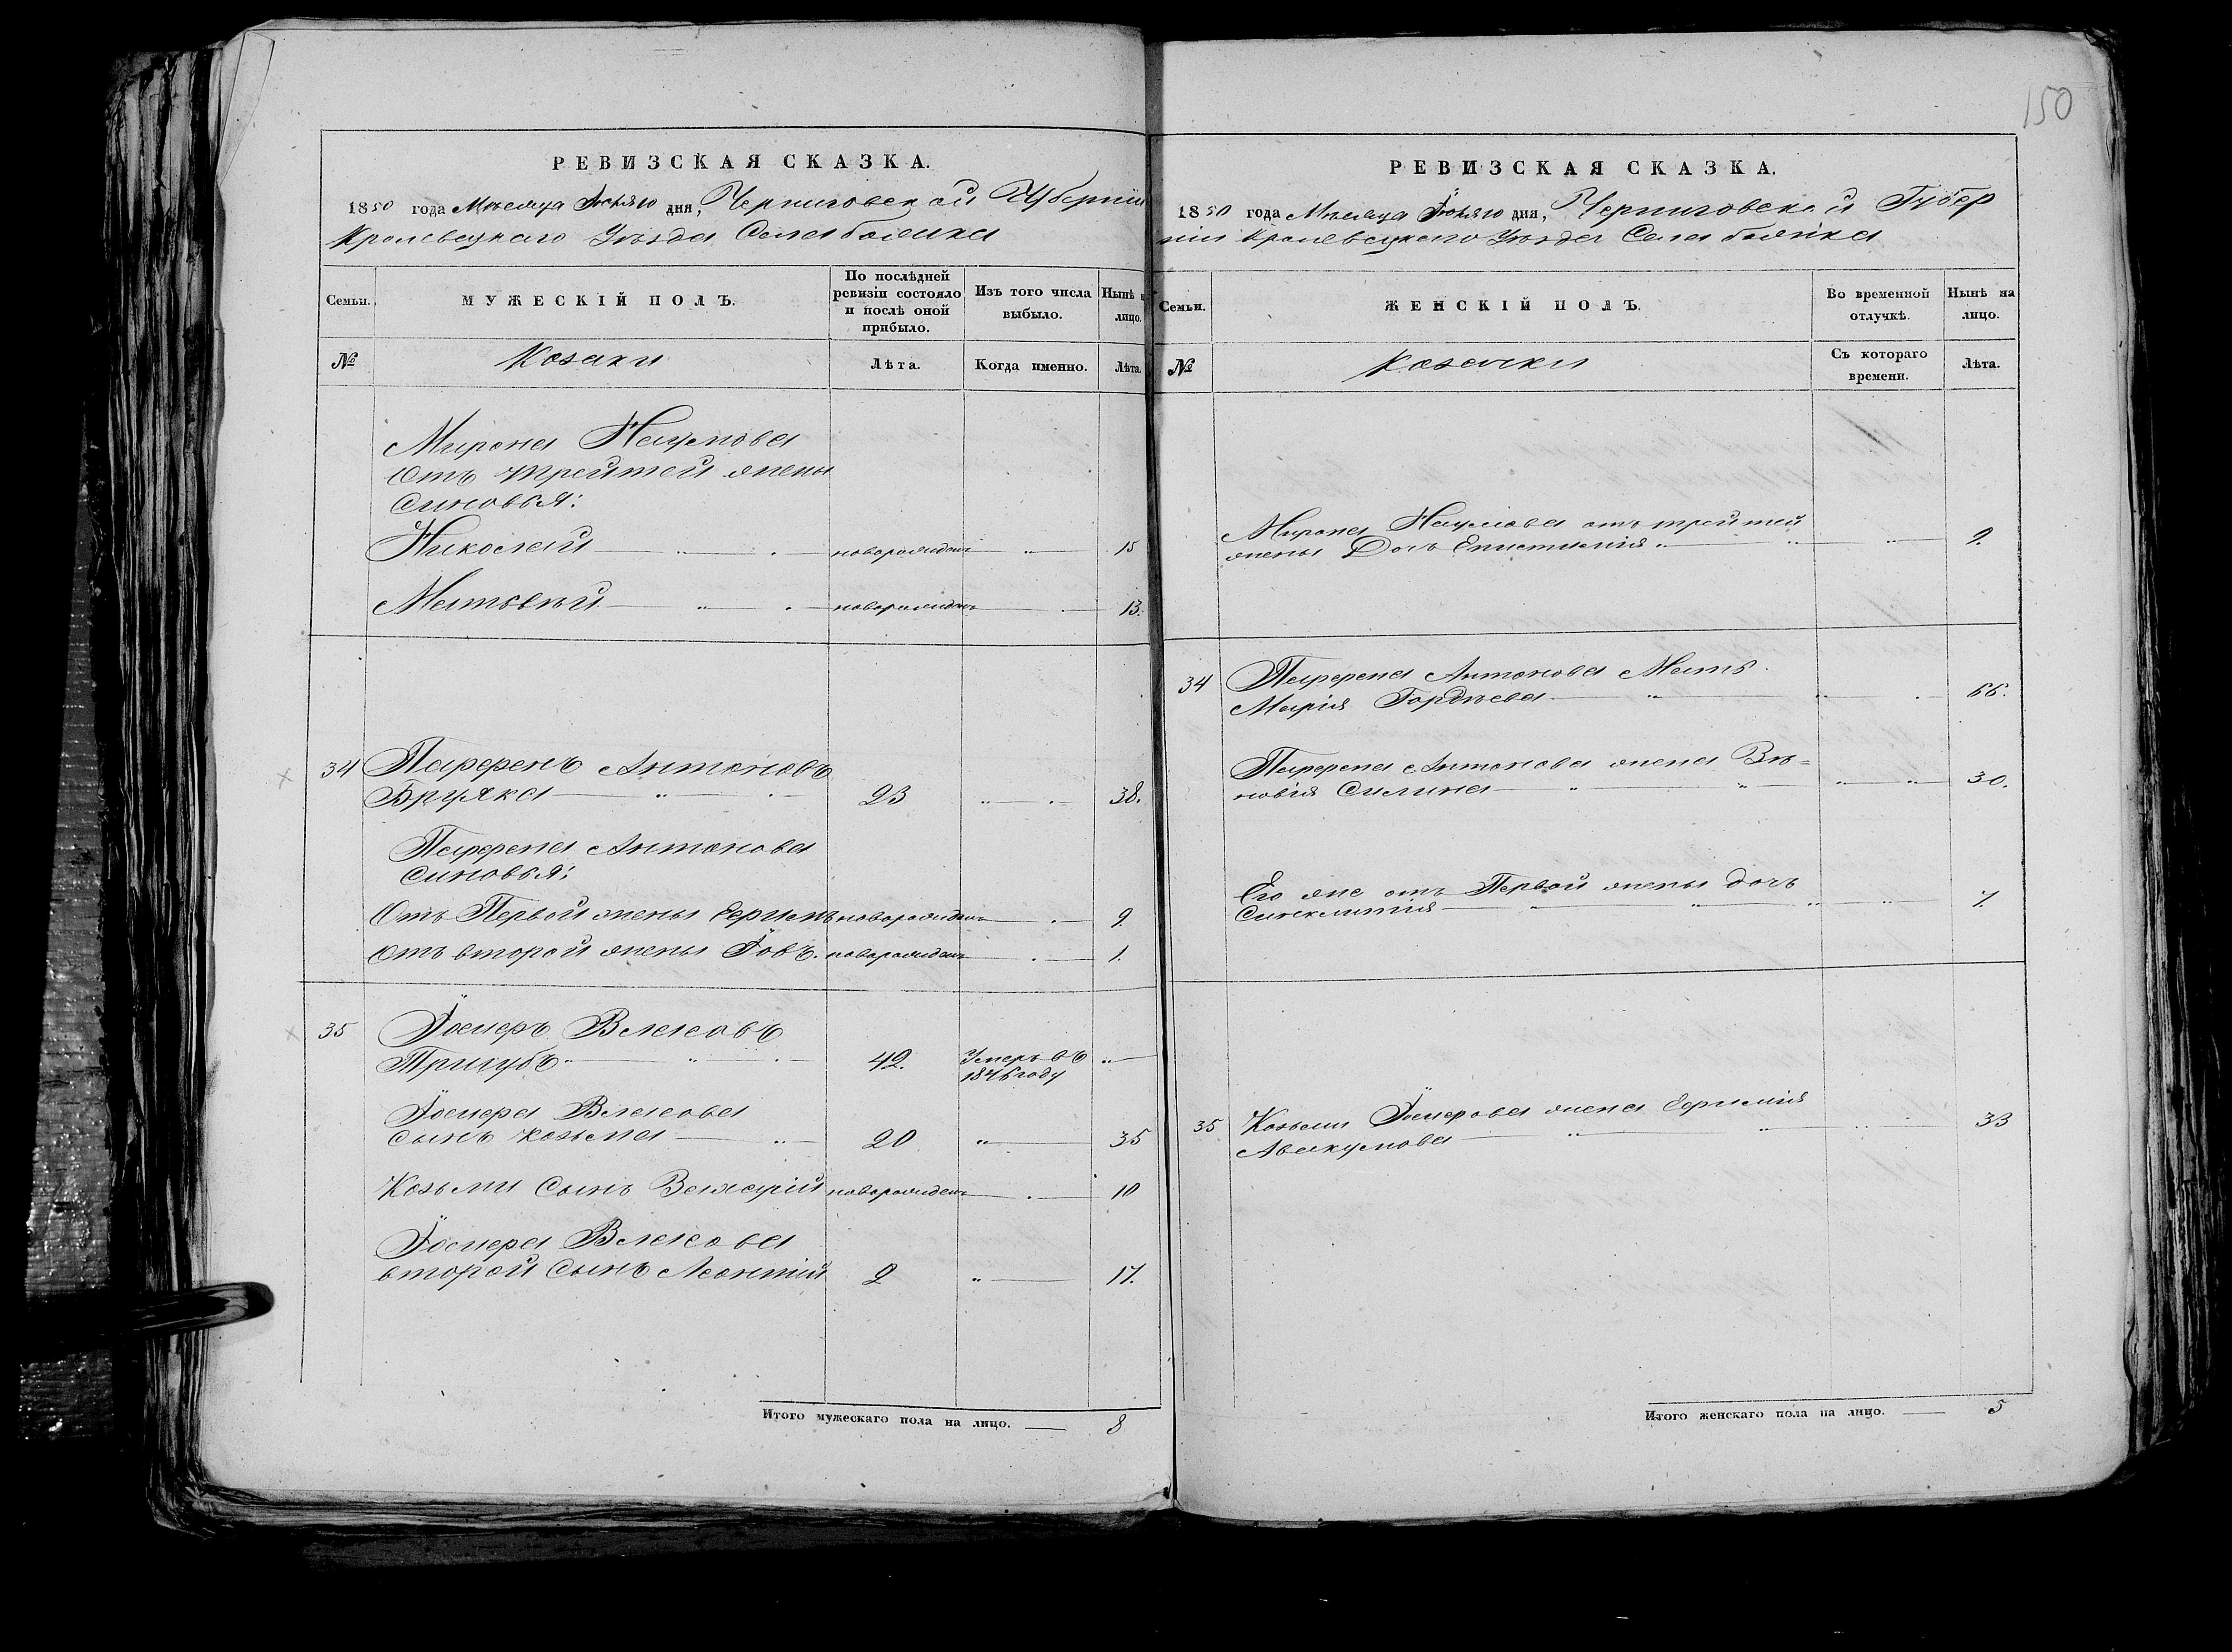 150
РЕВИЗСКАЯ СКАЗКА.
1850 года Мѣсяца Іюня 10 дня, Черниговской Губерніи
Кролевецкаго Уѣзда Села
Семьи.
МУЖЕСКІЙ ПОЛЪ.
По послѣдней ревизіи состояло и послѣ оной прибыло.
Изъ того числа выбыло.
Нынѣ на лицо.
№
Козаки
Лѣта.
Когда именно.
Лѣта.
Мирона Наумова
Отъ третей жены
синовья:
Николай новорожден 15
Матвѣй новорожден 13.
34 Парфенъ Антоновъ
Бруяка 23 38.
Парфена Антонова
синовья:
Отъ Первой жены Ефимъ новорожден 9.
Отъ второй жены Іовъ. новорожден 1.
35 Власовъ
Тригубъ 42. Умеръ въ
1846 году
Власова
сынъ Козьма 20 35
Козьми сынъ новорожден 10
Власова
второй сынъ Леонтій 2 17.
Итого мужескаго пола на лицо. 8
РЕВИЗСКАЯ СКАЗКА.
1850 года Мѣсяца Іюня 10 дня, Черниговской Губер
ніи Кролевецкаго Уѣзда Села
Семьи.
ЖЕНСКІЙ ПОЛЪ.
Во временной отлучкѣ.
Нынѣ на лицо.
№
Козачки
Съ котораго времени.
Лѣта.
Мирона Наумова отъ третей
жены Дочь Епистимія 9.
34 Парфена Антонова Мать
Марія Гордѣева 66.
Парфена Антонова жена
Силина 30.
Его же отъ Первой жены дочь
Синклитія 7.
35 Козьми жена Ефимія
Авакумова 33
Итого женскаго пола на лицо. 5